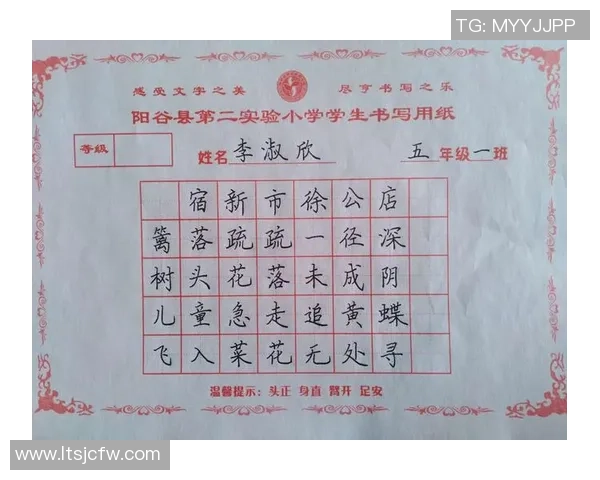 TG: MYYJJPP
感受文字之美 尽享书写之乐
阳谷县第二实验小学学生书写用纸
等级
姓名 李淑欣 五 年级 一 班
宿新市徐公店
篱落疏疏一径深
树头花落未成阴
儿童急走追黄蝶
飞入菜花无处寻
温馨提示：头正 身直 臂开 足安
www.ltsjcfw.com